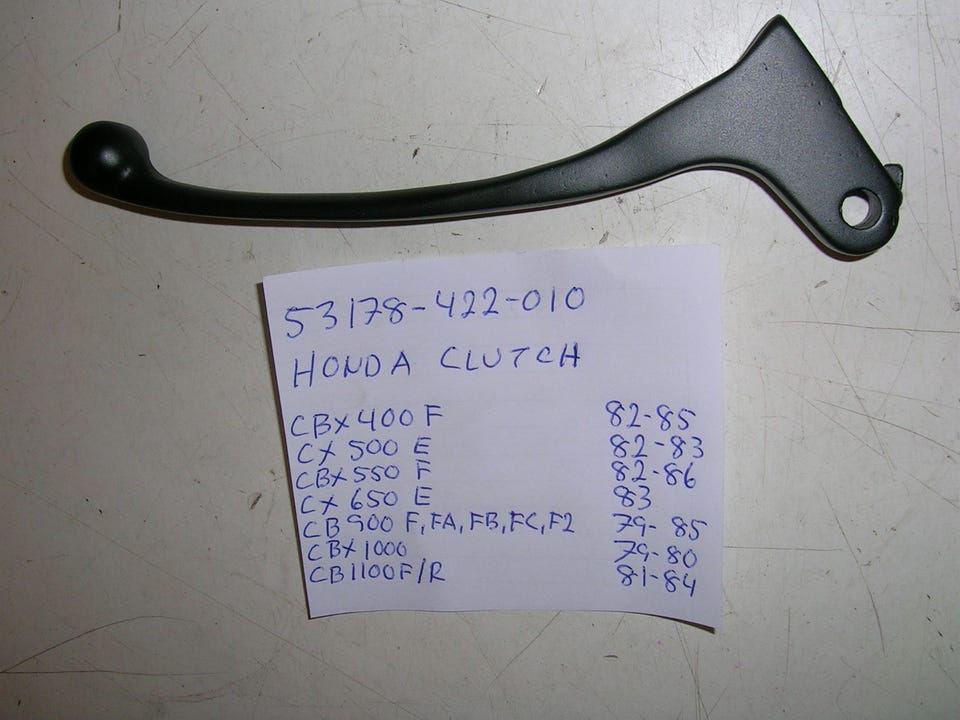 53178-422-010
HONDA CLUTCH
CBX 400 F 82-85
CX 500 E 82-83
CBX 550 F 82-86
CX 650 E 83
CB 900 F, FA, FB, FC, F2 79-85
CBX 1000 79-80
CB1100F/R 81-84